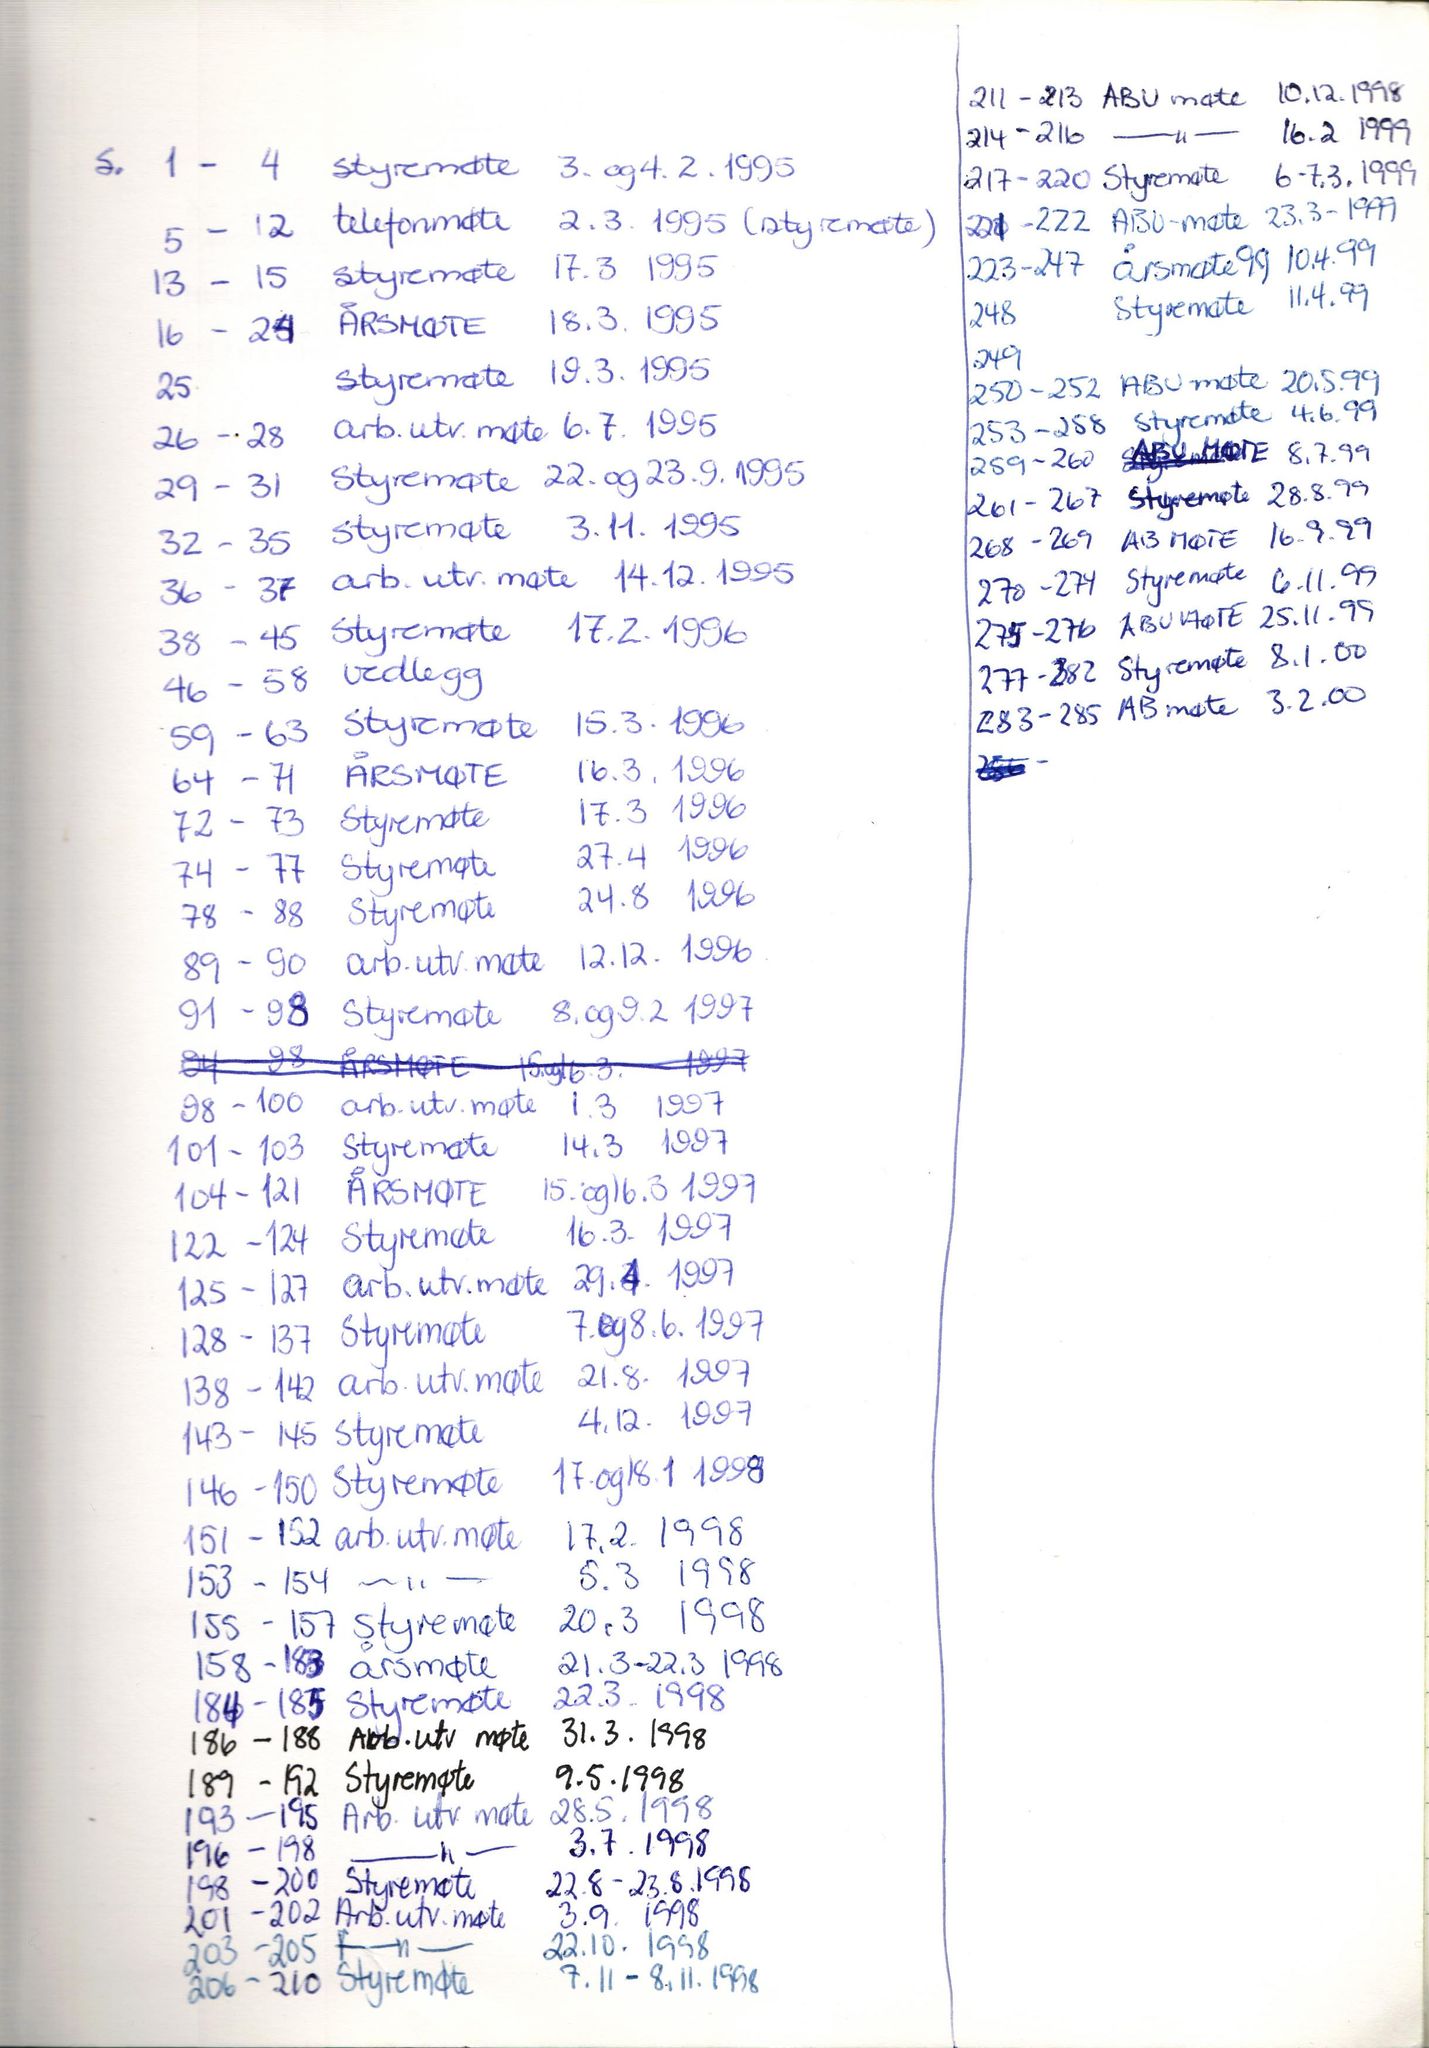 s. 1 - 4 styremøte 3. og 4. 2. 1995
5 - 12 telefonmøte 2.3. 1995 (styremøte)
13 - 15 styremøte 17.3 1995
16 - 24 ÅRSMØTE 18.3. 1995
25 styremøte 19.3. 1995
26 - 28 arb. utv. møte 6.7. 1995
29 - 31 Styremøte 22. og 23.9. 1995
32 - 35 styremøte 3.11. 1995
36 - 37 arb. utv. møte 14.12. 1995
38 - 45 Styremøte 17.2. 1996
46 - 58 vedlegg
59 - 63 Styremøte 15.3. 1996
64 - 71 ÅRSMØTE 16.3. 1996
72 - 73 Styremøte 17.3 1996
74 - 77 Styremøte 27.4 1996
78 - 88 Styremøte 24.8 1996
89 - 90 arb. utv. møte 12.12. 1996
91 - 98 Styremøte 8. og 9.2 1997
94 - 98 ÅRSMØTE 15. og 16.3. 1997
98 - 100 arb. utv. møte 1.3 1997
101 - 103 Styremøte 14.3 1997
104 - 121 ÅRSMØTE 15. og 16.3 1997
122 - 124 Styremøte 16.3. 1997
125 - 127 arb. utv. møte 29.4. 1997
128 - 137 Styremøte 7. og 8.6. 1997
138 - 142 arb. utv. møte 21.8. 1997
143 - 145 Styremøte 4.12. 1997
146 - 150 Styremøte 17. og 18.1 1998
151 - 152 arb. utv. møte 17.2. 1998
153 - 154 — " — 5.3 1998
155 - 157 Styremøte 20.3 1998
158 - 183 Årsmøte 21.3-22.3 1998
184 - 185 Styremøte 22.3. 1998
186 - 188 Arb. utv møte 31.3. 1998
189 - 192 Styremøte 9.5.1998
193 - 195 Arb. utv møte 28.5. 1998
196 - 198 — " — 3.7. 1998
198 - 200 Styremøte 22.8 - 23.8.1998
201 - 202 Arb. utv. møte 3.9. 1998
203 - 205 — " — 22.10. 1998
206 - 210 Styremøte 7.11 - 8.11.1998
211 - 213 ABU møte 10.12.1998
214 - 216 — " — 16.2 1999
217 - 220 Styremøte 6-7.3.1999
221 - 222 ABU-møte 23.3-1999
223 - 247 årsmøte 99 10.4.99
248 Styremøte 11.4.99
249
250 - 252 ABU møte 20.5.99
253 - 258 Styremøte 4.6.99
259 - 260 ABU MØTE 8.7.99
261 - 267 Styremøte 28.8.99
268 - 269 AB MØTE 16.9.99
270 - 274 Styremøte 6.11.99
275 - 276 ABU MØTE 25.11.99
277 - 282 Styremøte 8.1.00
283 - 285 AB møte 3.2.00